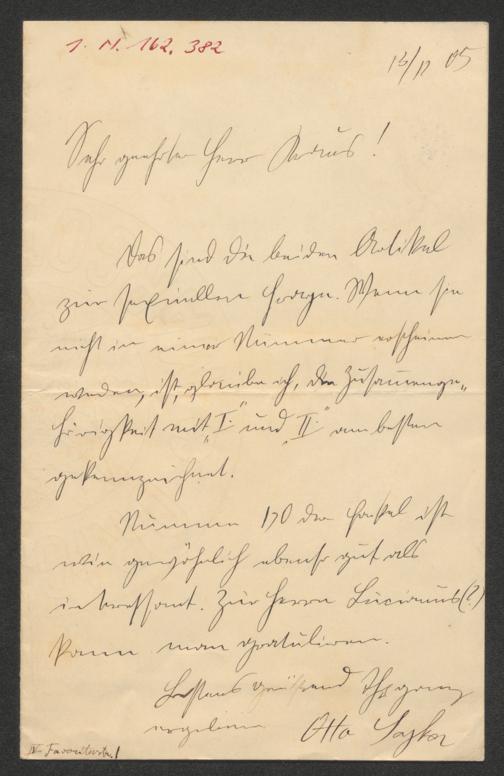 I. N. 162.382
13/11 05
Sehr geehrter Herr Kraus!
Das sind die beiden Artikel
zur sexuellen Frage. Wenn sie
nicht in einer Nummer erscheinen
werden, ist, glaube ich, die Zusammenge„
hörigkeit mit „I.“ und „II.“ am besten
gekennzeichnet.
Nummer 170 der Fackel ist
wie gewöhnlich ebenso gut als
interessant. Zu Herrn Lucianus (?)
kann man gratulieren.
Bestens grüßend Ihr ganz
ergebener Otto Soyka
IV. Favoritenstr. 1